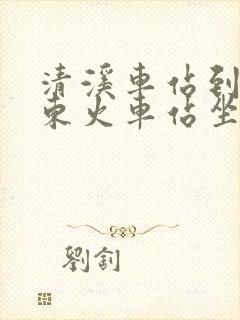 清溪車佔到
東火車佔坐
劉釗